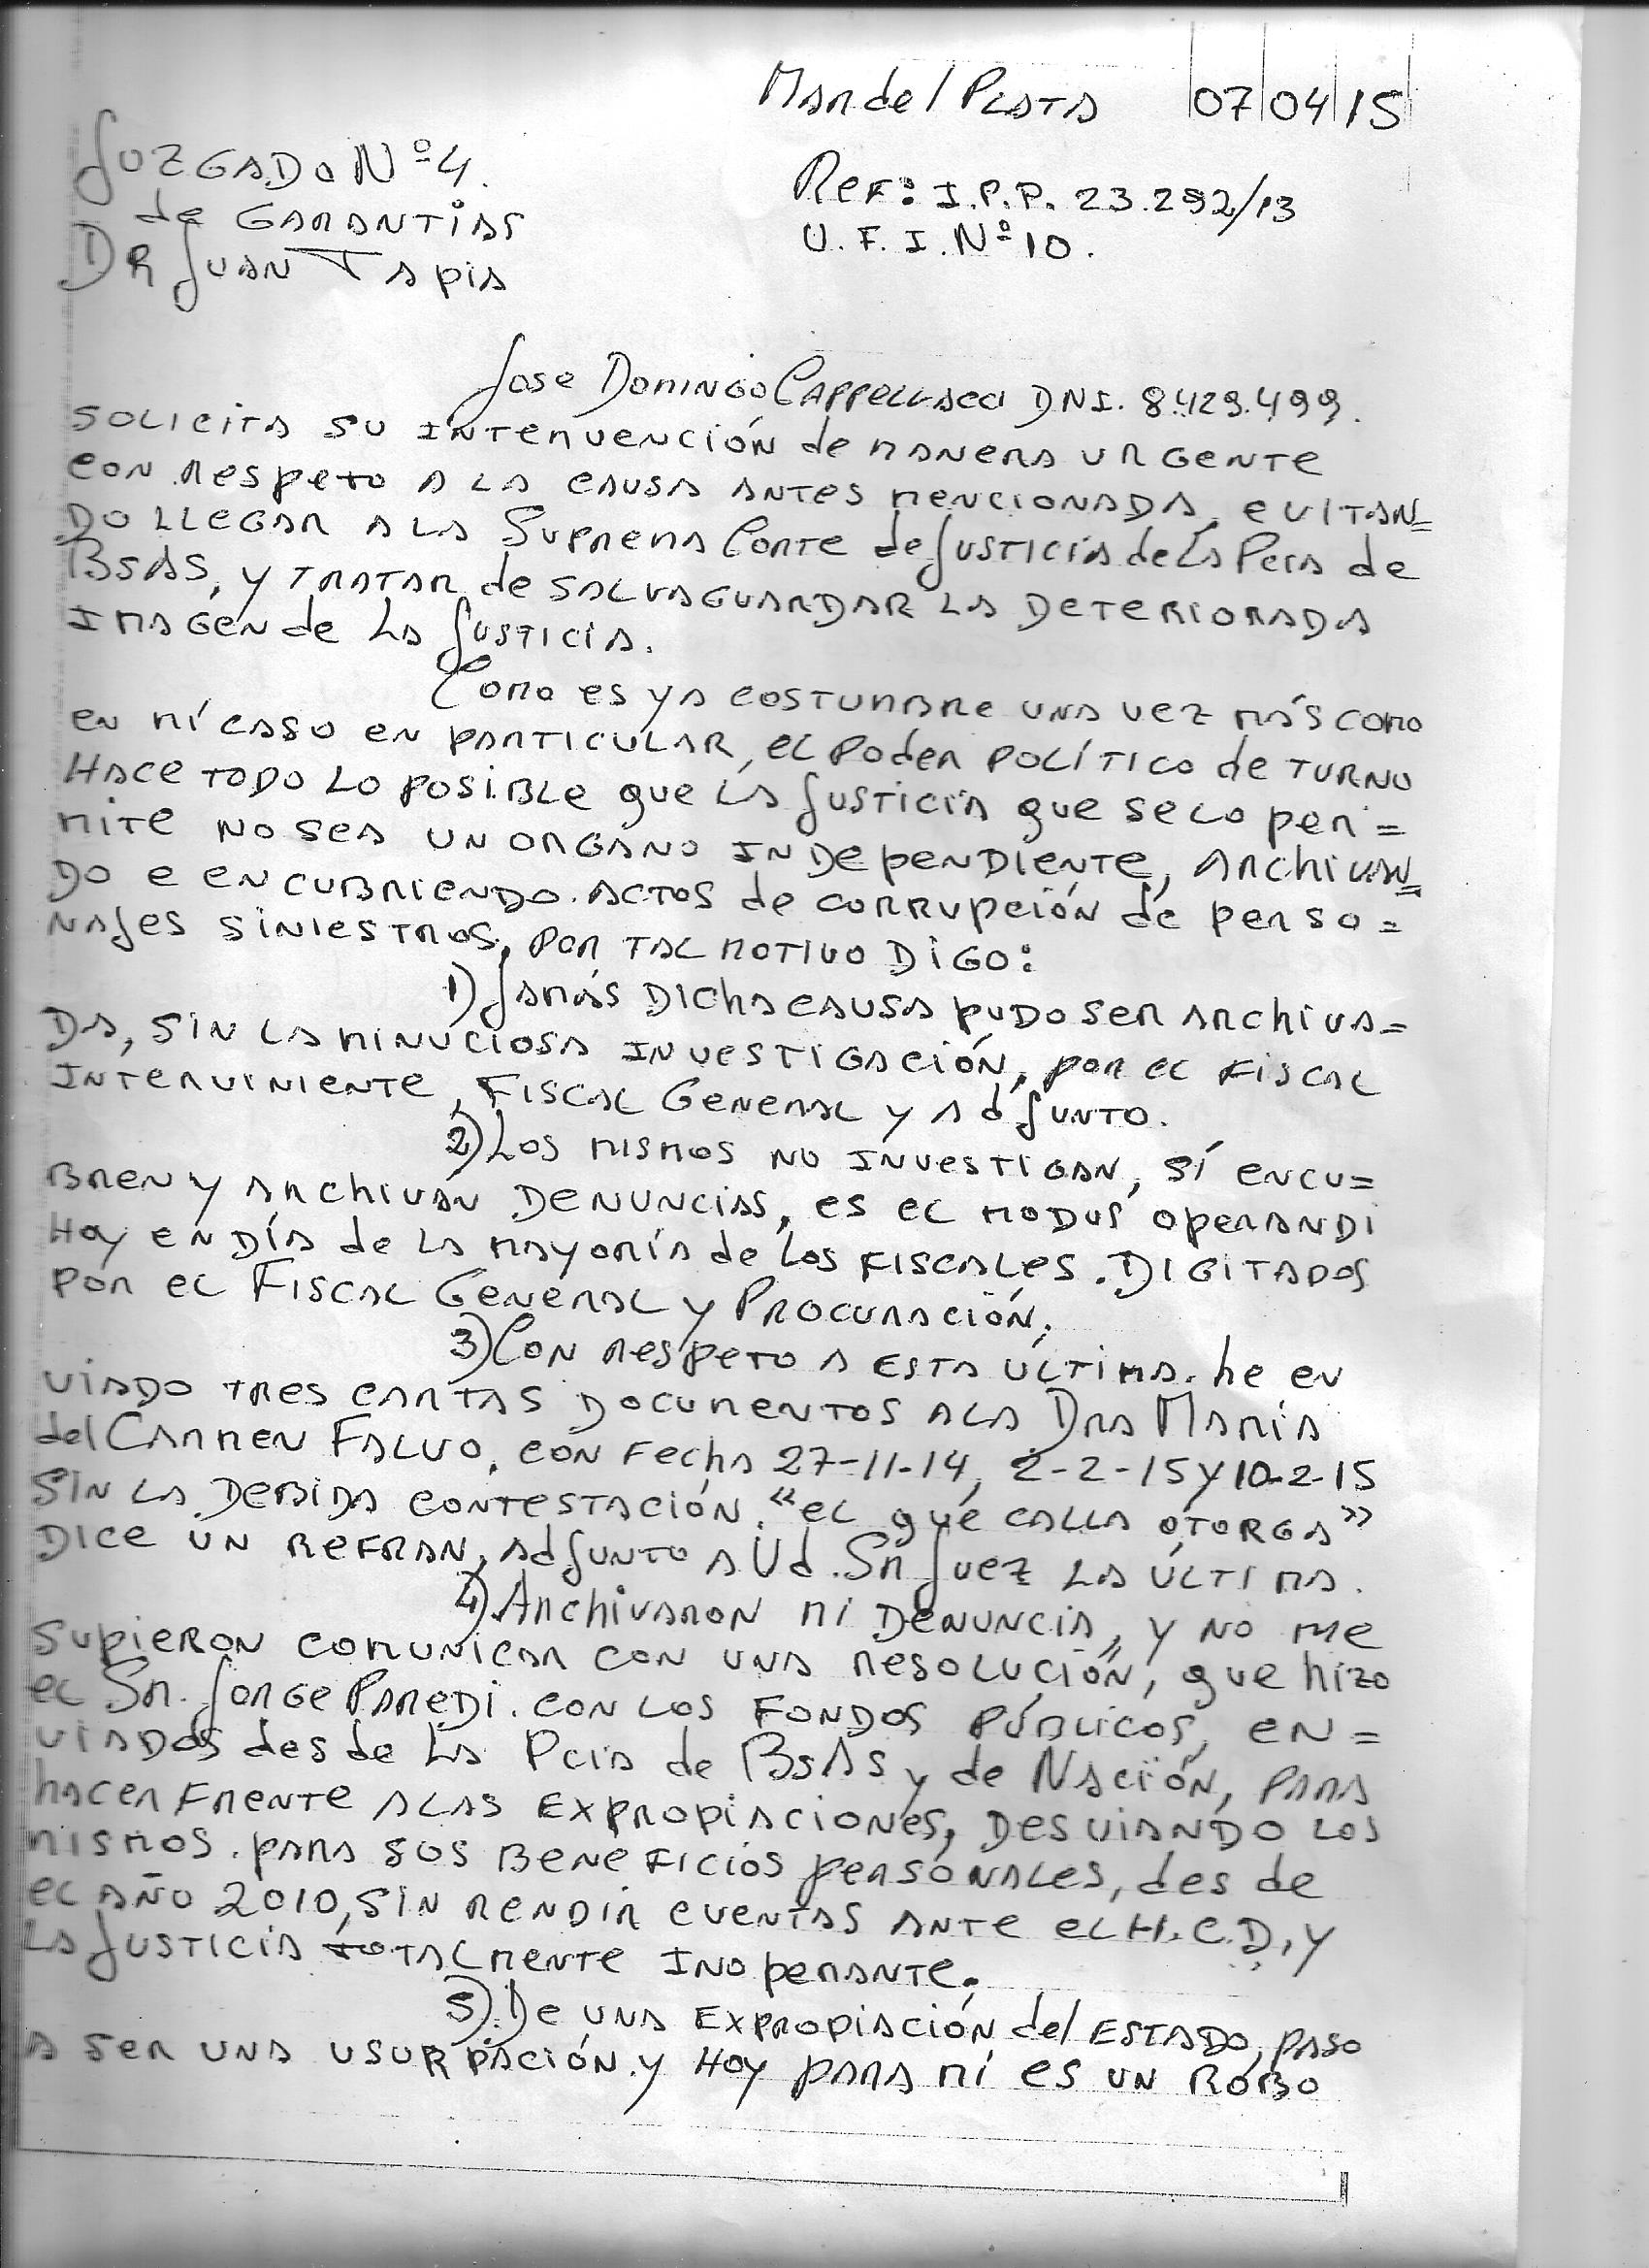 Mar del Plata 07/04/15
Juzgado Nº 4.
de Garantias
Dr Juan Tapia
Ref: I.P.P. 23.292/13
U.F.I. Nº 10.
Jose Domingo Cappellacci DNI. 8.429.499.
solicita su intervención de manera urgente
con respeto a la causa antes mencionada, evitan=
do llegar a la Suprema Corte de Justicia de la Pcia de
BsAs, y tratar de salvaguardar la deteriorada
imagén de la Justicia.
Como es ya costumbre una vez más como
en mí caso en particular, el Poder Político de turno
hace todo lo posible que la Justicia que se lo per=
mite no sea un organo independiente, archivan=
do e encubriendo actos de corrupción de perso=
najes siniestros, por tal motivo digo:
1) Jamás dicha causa pudo ser archiva=
da, sin la minuciosa investigación, por el fiscal
interviniente, Fiscal General y adjunto.
2) Los mismos no investigan, sí encu=
bren y archiván denuncias, es el modus operandi
hoy en día de la mayoría de los fiscales. Digitados
por el Fiscal General y Procuración.
3) Con respeto a esta última. he en
viado tres cartas documentos a la Dra María
del Carmen Falvo, con fecha 27-11-14, 2-2-15 y 10-2-15
sin la debida contestación. "el qué calla otorga"
dice un refran, adjunto a Ud. Sr Juez la última.
4) Archivaron mi denuncia, y no me
supieron comunicar con una "resolución", que hizo
el Sr. Jorge Paredi. con los fondos públicos, en=
viados desde la Pcia de BsAs y de Nación, para
hacer frente a las expropiaciones, desviando los
mismos. para sus beneficios personales, desde
el año 2010, sin rendir cuentas ante el H.C.D, y
la Justicia totalmente inoperante.
5) De una expropiación del Estado, paso
a ser una usurpación y hoy para mí es un robo